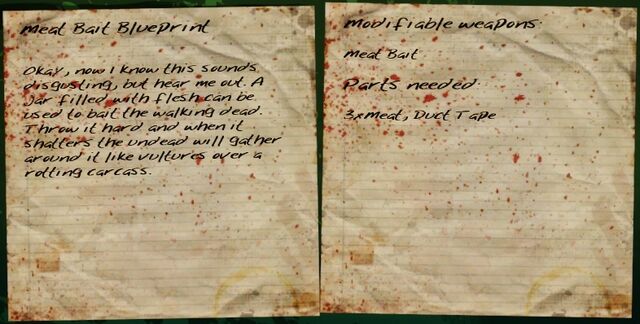 Meat Bait Blueprint
Okay, now I know this sounds
disgusting, but hear me out. A
jar filled with flesh can be
used to bait the walking dead.
Throw it hard and when it
shatters the undead will gather
around it like vultures over a
rotting carcass.
Modifiable weapons:
Meat Bait
Parts needed:
3xmeat, Duct Tape